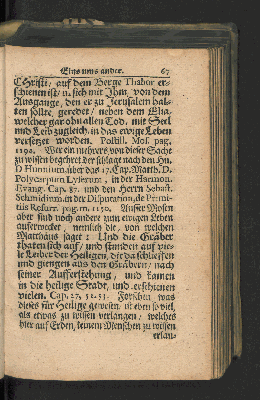 Eins ums ander. 67
Christi / auf dem Berge Thabor er-
schienen ist / u. sich mit Ihm, von dem
Ausgange, den er zu Jerusalem hal-
ten sollte, geredet / neben dem Elia,
welcher gar ohn allen Tod, mit Seel
und Leib zugleich, in das ewige Leben
versetzet worden. Postill. Mos. pag.
1190. Wer ein mehrers von dieser Sache
zu wissen begehret der schlage nach den Hn.
D. Hunnium über das 17. Cap. Matth. D.
Polycarpum Lyserum, in der Harmon.
Evang. Cap. 87. und den Herrn Sebast.
Schmidium in der Disputation, de Primi-
tiis Resurr. pag. m. 1150. Ausser Mosen
aber sind noch andere zum ewigen Leben
auferwecket, nemlich die, von welchen
Matthäus saget: Und die Gräber
thäten sich auf / und stunden auf vie-
le Leiber der Heiligen, die da schlieffen
und giengen aus den Gräbern / nach
seiner Auferstehung, und kamen
in die heilige Stadt, und erschienen
vielen. Cap. 27, 51. 53. Forschen was
dieses für Heilige gewesen, ist eben so viel,
als etwas zu wissen verlangen, welches
hier auf Erden, keinem Menschen zu wissen
erlau-